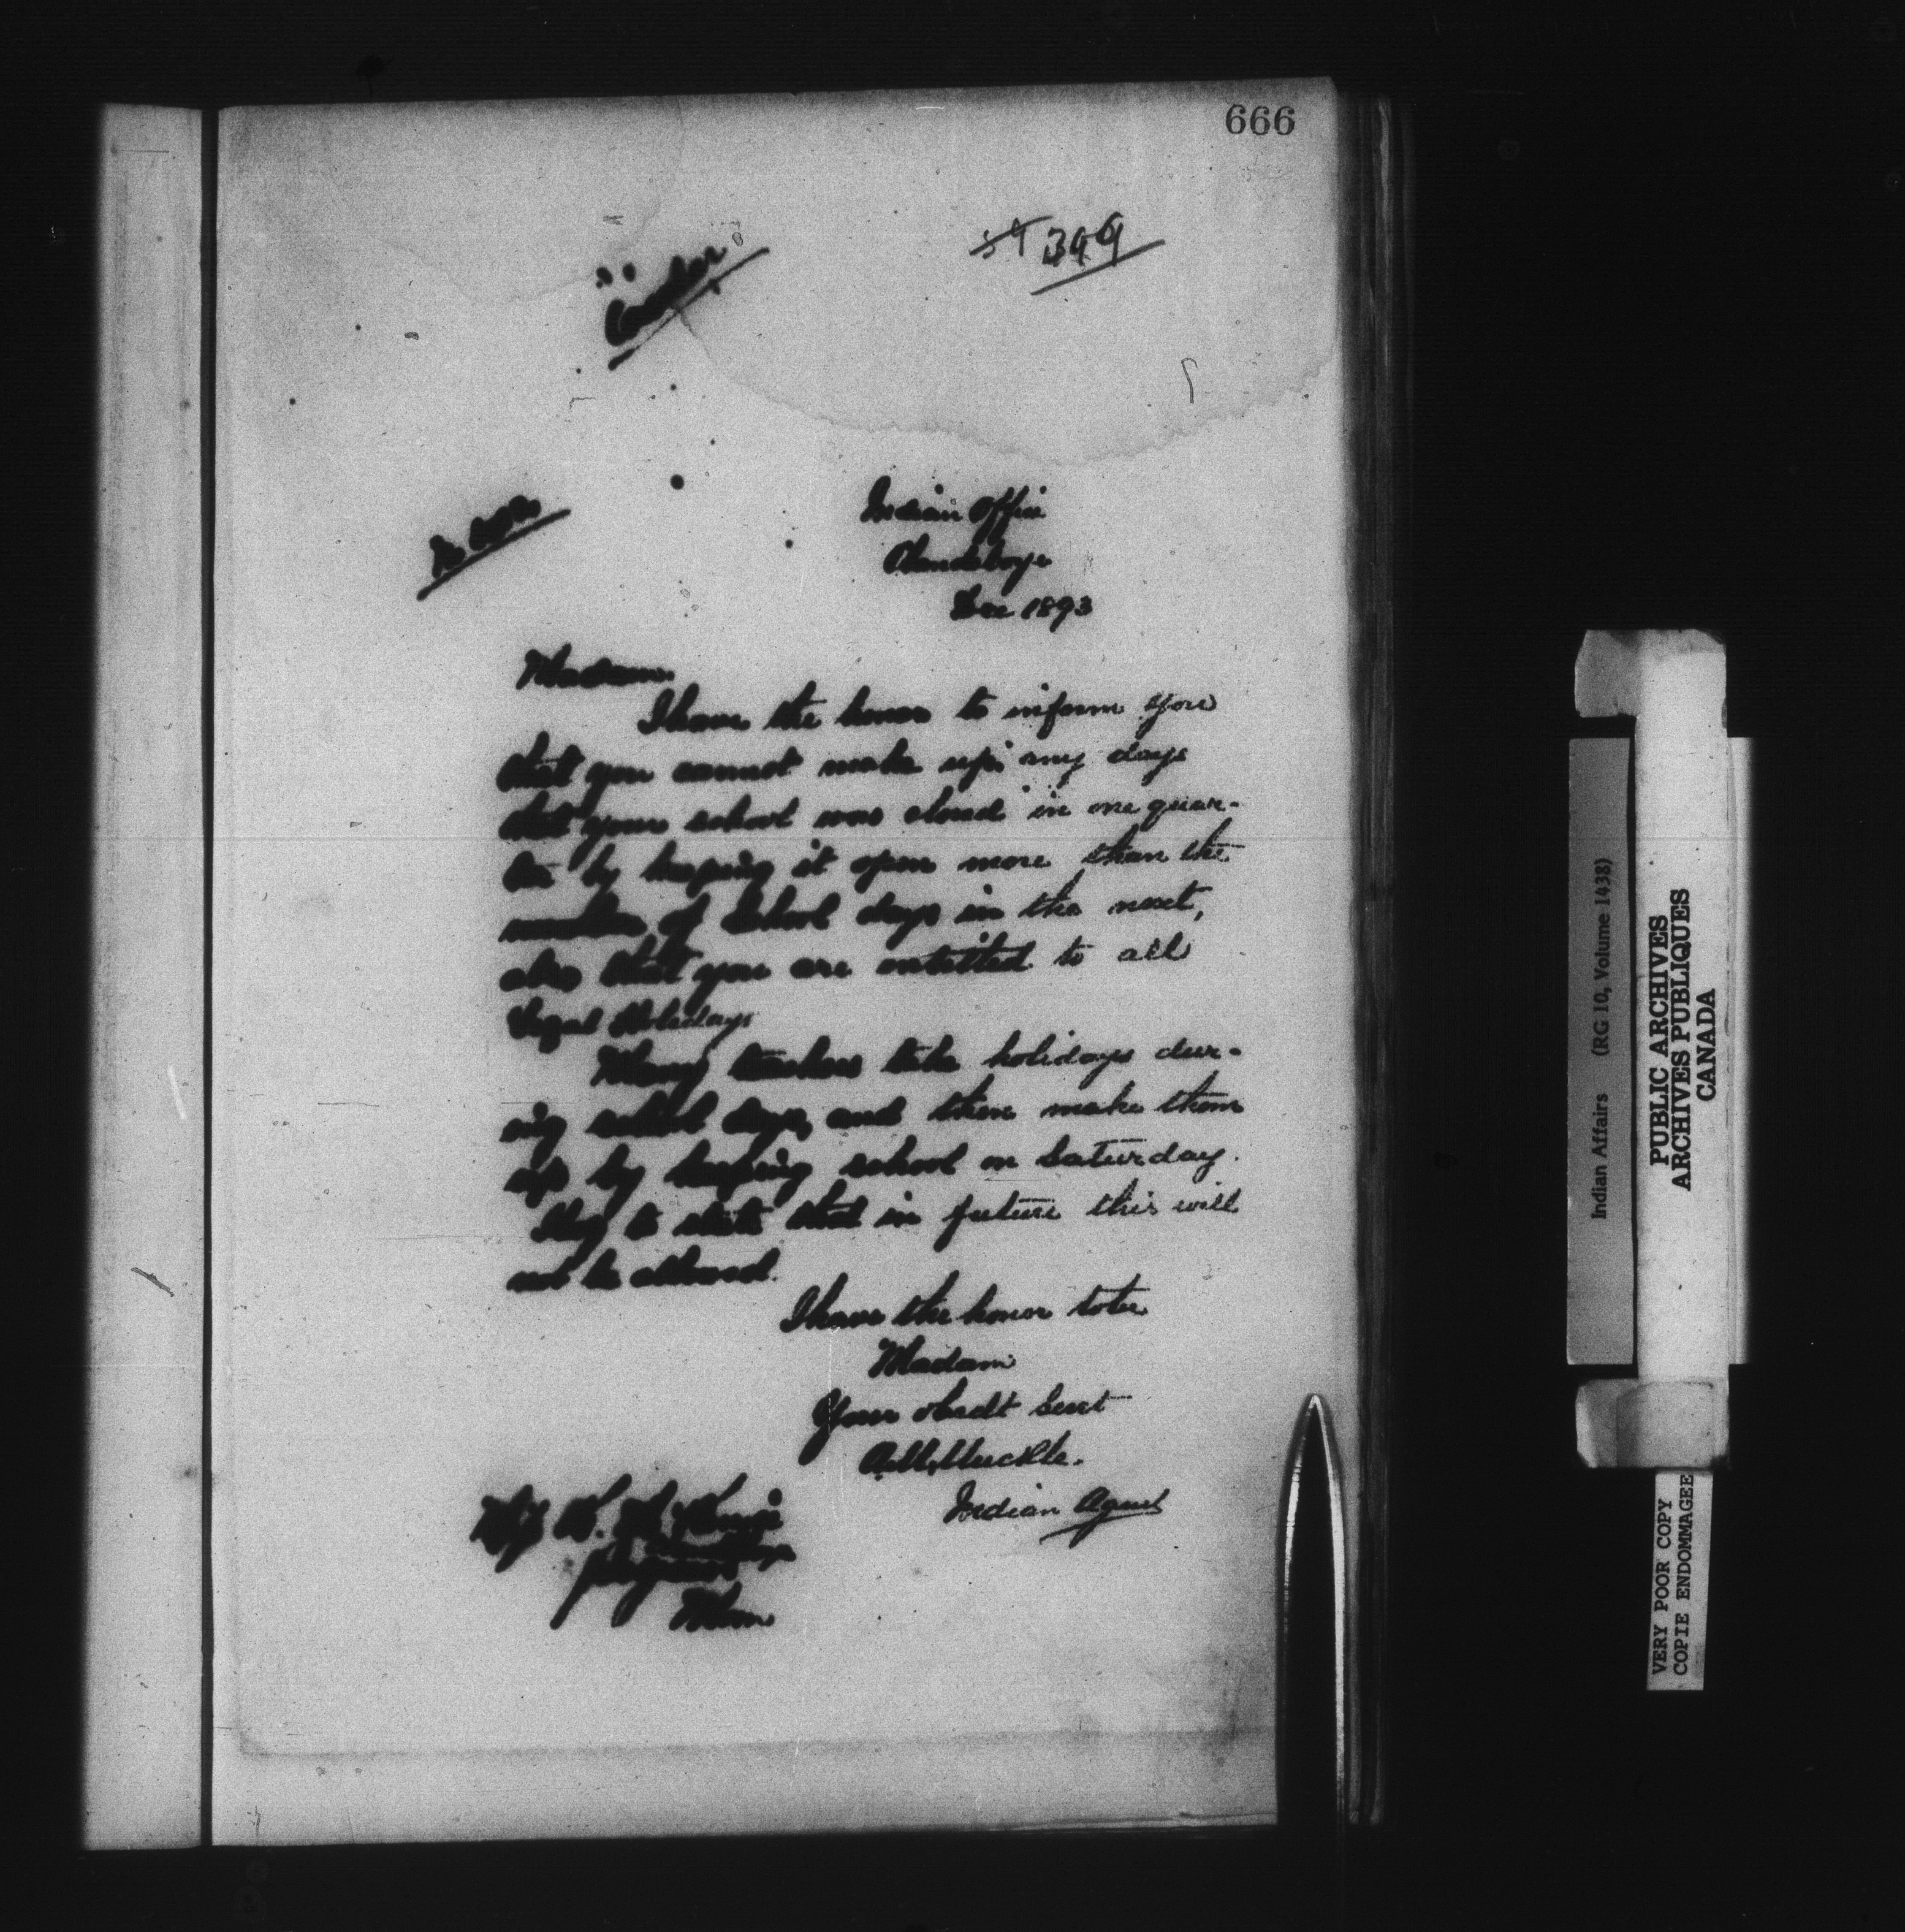 666
399
Indian Office
Clandeboye
Dec 1893
Madam.
I have the honor to inform you
that you cannot make up any days
that your school was closed in one quar-
ter by keeping it open more than the
number of School days in the next,
also that you are entitled to all
Legal Holidays
Many teachers take holidays dur-
ing school days, and then make them
up by keeping school on Saturday.
Beg to state that in future this will
not be allowed.
I have the honor to be
Madam
Your obedt Servt
A.M. Muckle.
Indian Agent
Man
Indian Affairs (RG 10, Volume 1438)
PUBLIC ARCHIVES
ARCHIVES PUBLIQUES
CANADA
VERY POOR COPY
COPIE ENDOMMAGEE